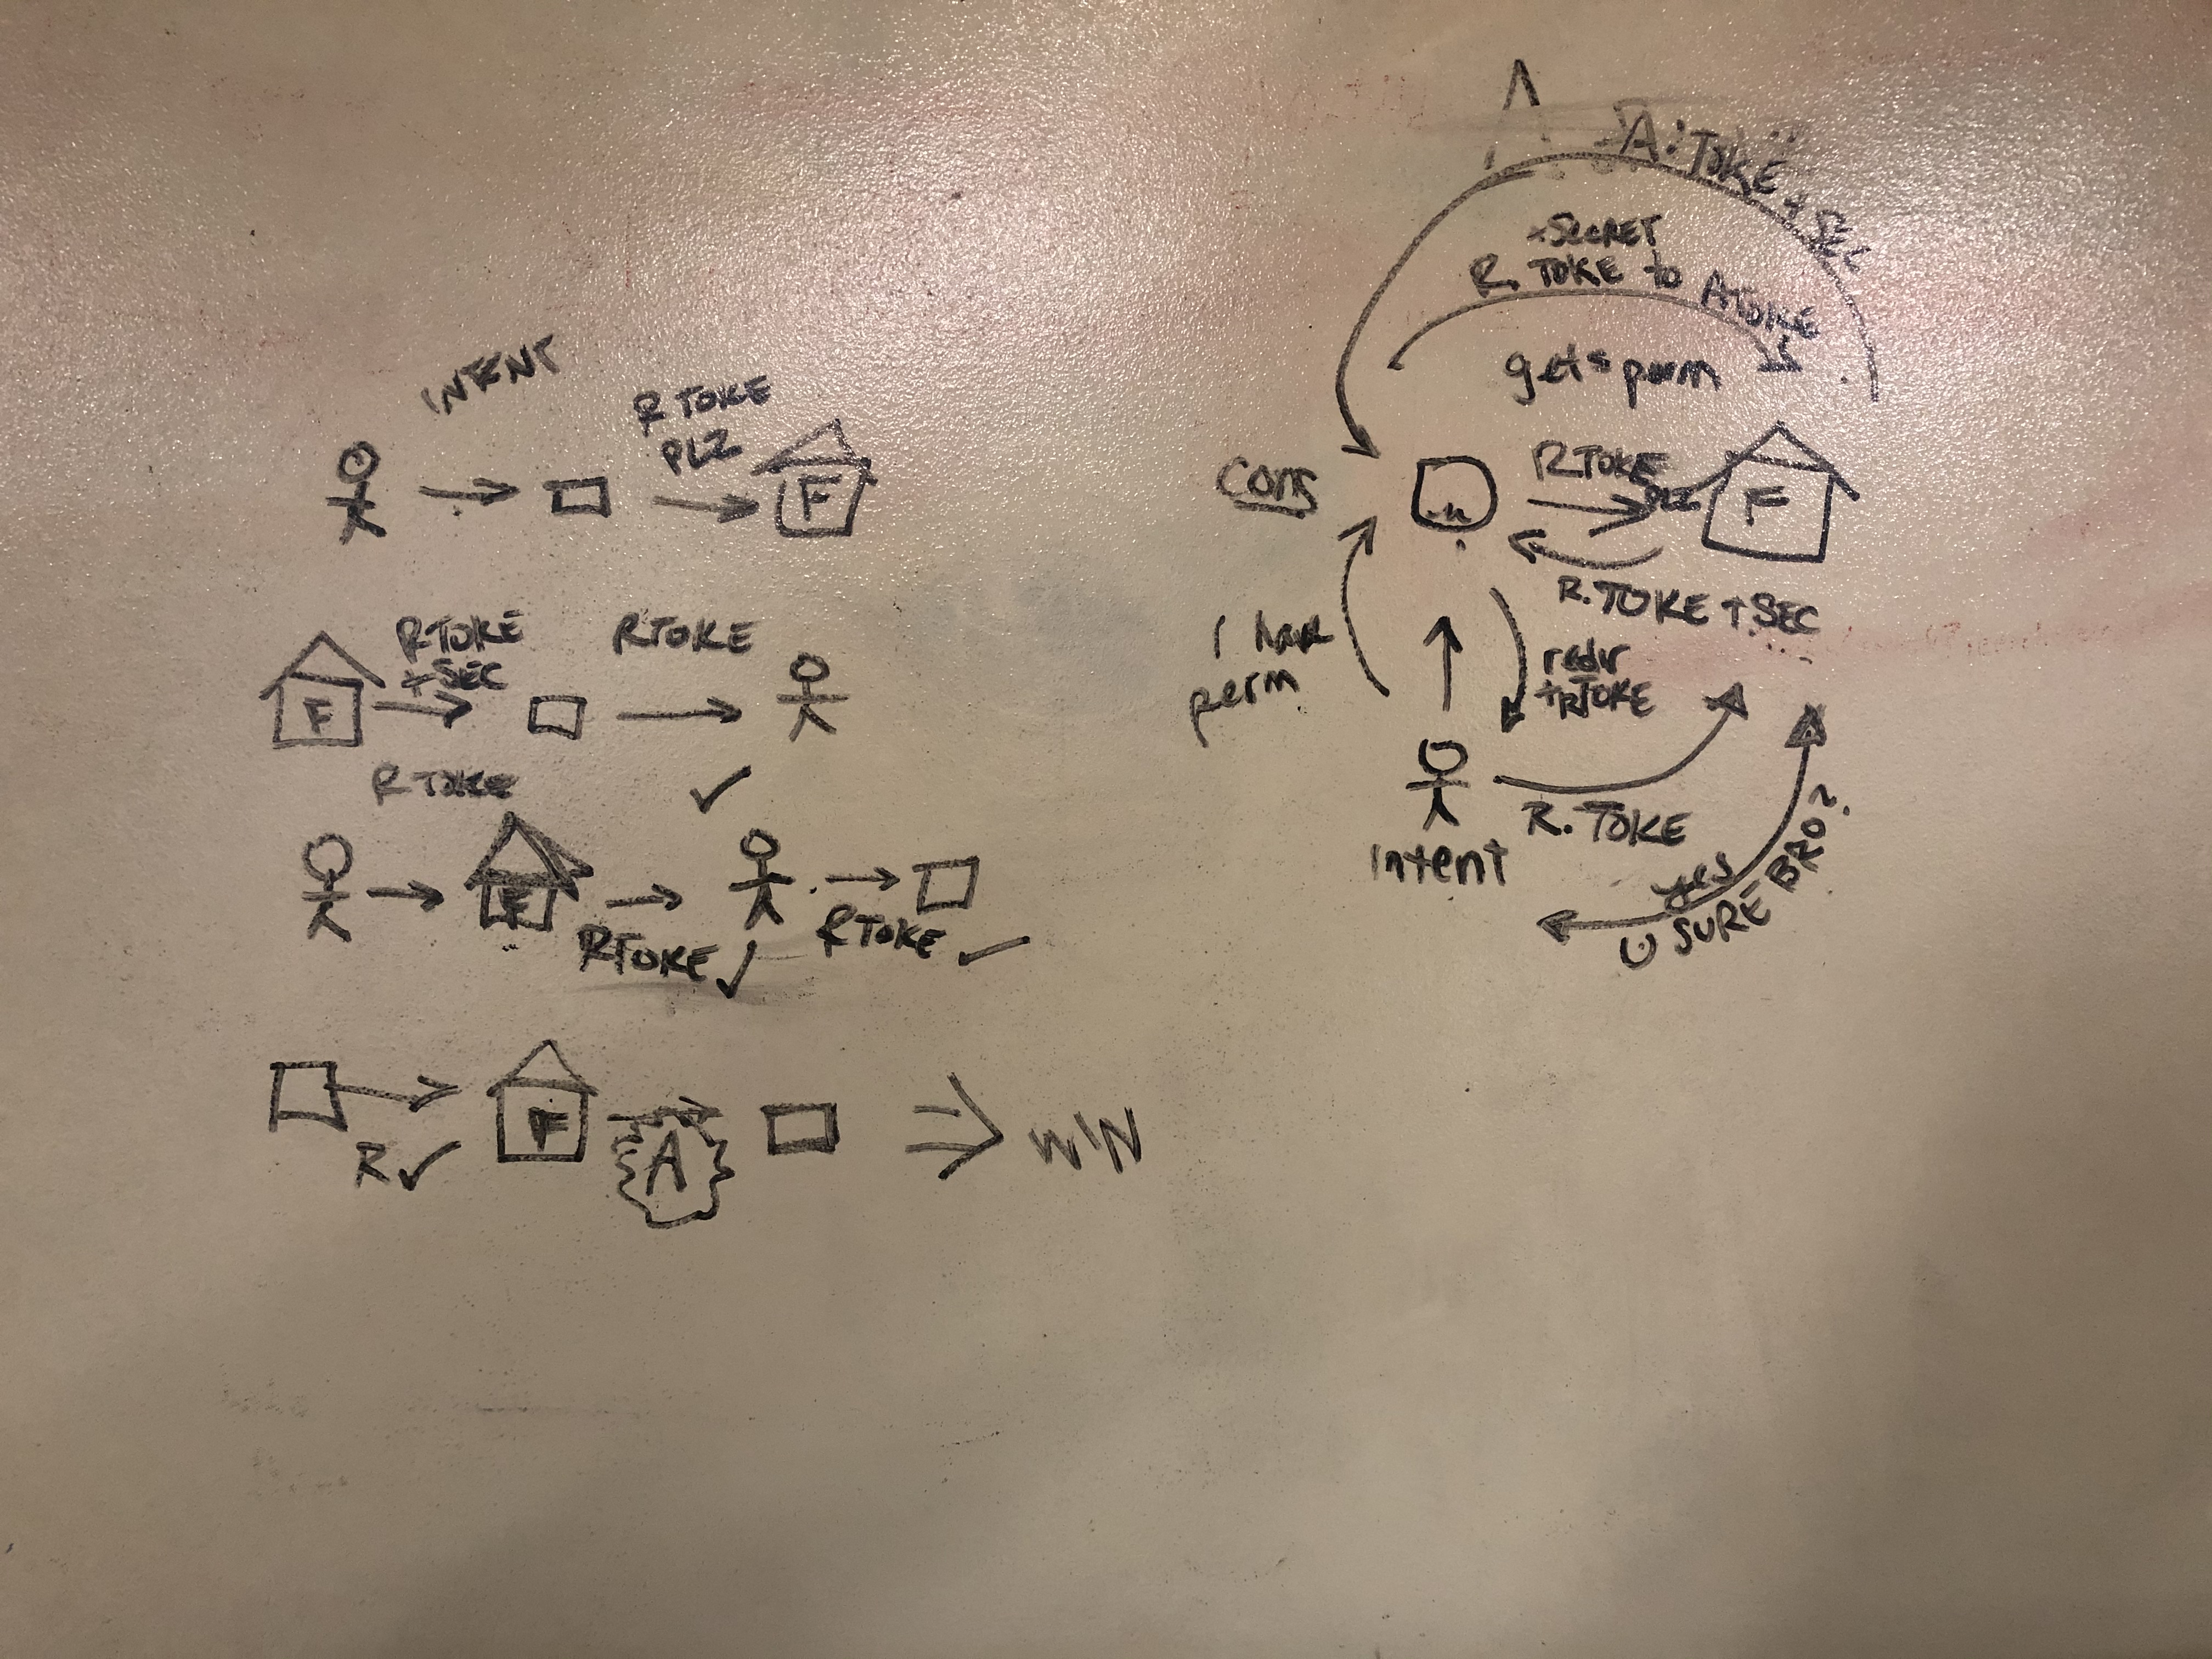 INTENT
R TOKE
PLZ
F
RTOKE
+SEC
RTOKE
F
R TOKE
F
RTOKE
RTOKE
F
R
A
WIN
A
A: TOKE + SEC
+SECRET
R. TOKE to ATOKE
get perm
Cons
RTOKE
PLZ
F
R. TOKE + SEC
I have
perm
redir
+RTOKE
R. TOKE
Intent
yes
U SURE BRO?